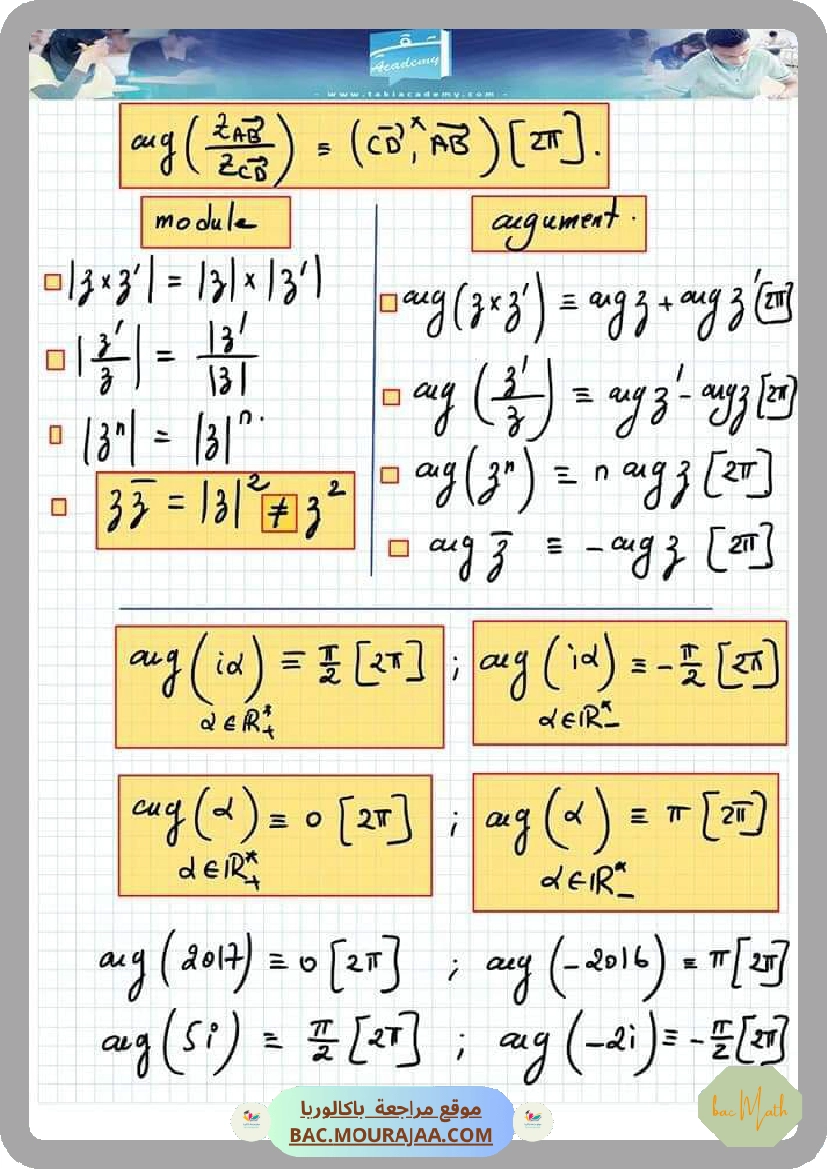 Academy
- www.takiacademy.com -
arg(Z_AB⃗ / Z_CD⃗) ≡ (CD⃗ ,^ AB⃗) [2π].
module
argument.
|z × z'| = |z| × |z'|
|z'/z| = |z'|/|z|
|zⁿ| = |z|ⁿ.
z z̄ = |z|² ≠ z²
arg(z × z') ≡ arg z + arg z' [2π]
arg(z'/z) ≡ arg z' - arg z [2π]
arg(zⁿ) ≡ n arg z [2π]
arg z̄ ≡ - arg z [2π]
arg(iα) ≡ π/2 [2π] ; arg(iα) ≡ -π/2 [2π]
α ∈ ℝ*₊ α ∈ ℝ*₋
arg(α) ≡ 0 [2π] ; arg(α) ≡ π [2π]
α ∈ ℝ*₊ α ∈ ℝ*₋
arg(2017) ≡ 0 [2π] ; arg(-2016) ≡ π [2π]
arg(5i) ≡ π/2 [2π] ; arg(-2i) ≡ -π/2 [2π]
موقع مراجعة باكالوريا
BAC.MOURAJAA.COM
bac Math